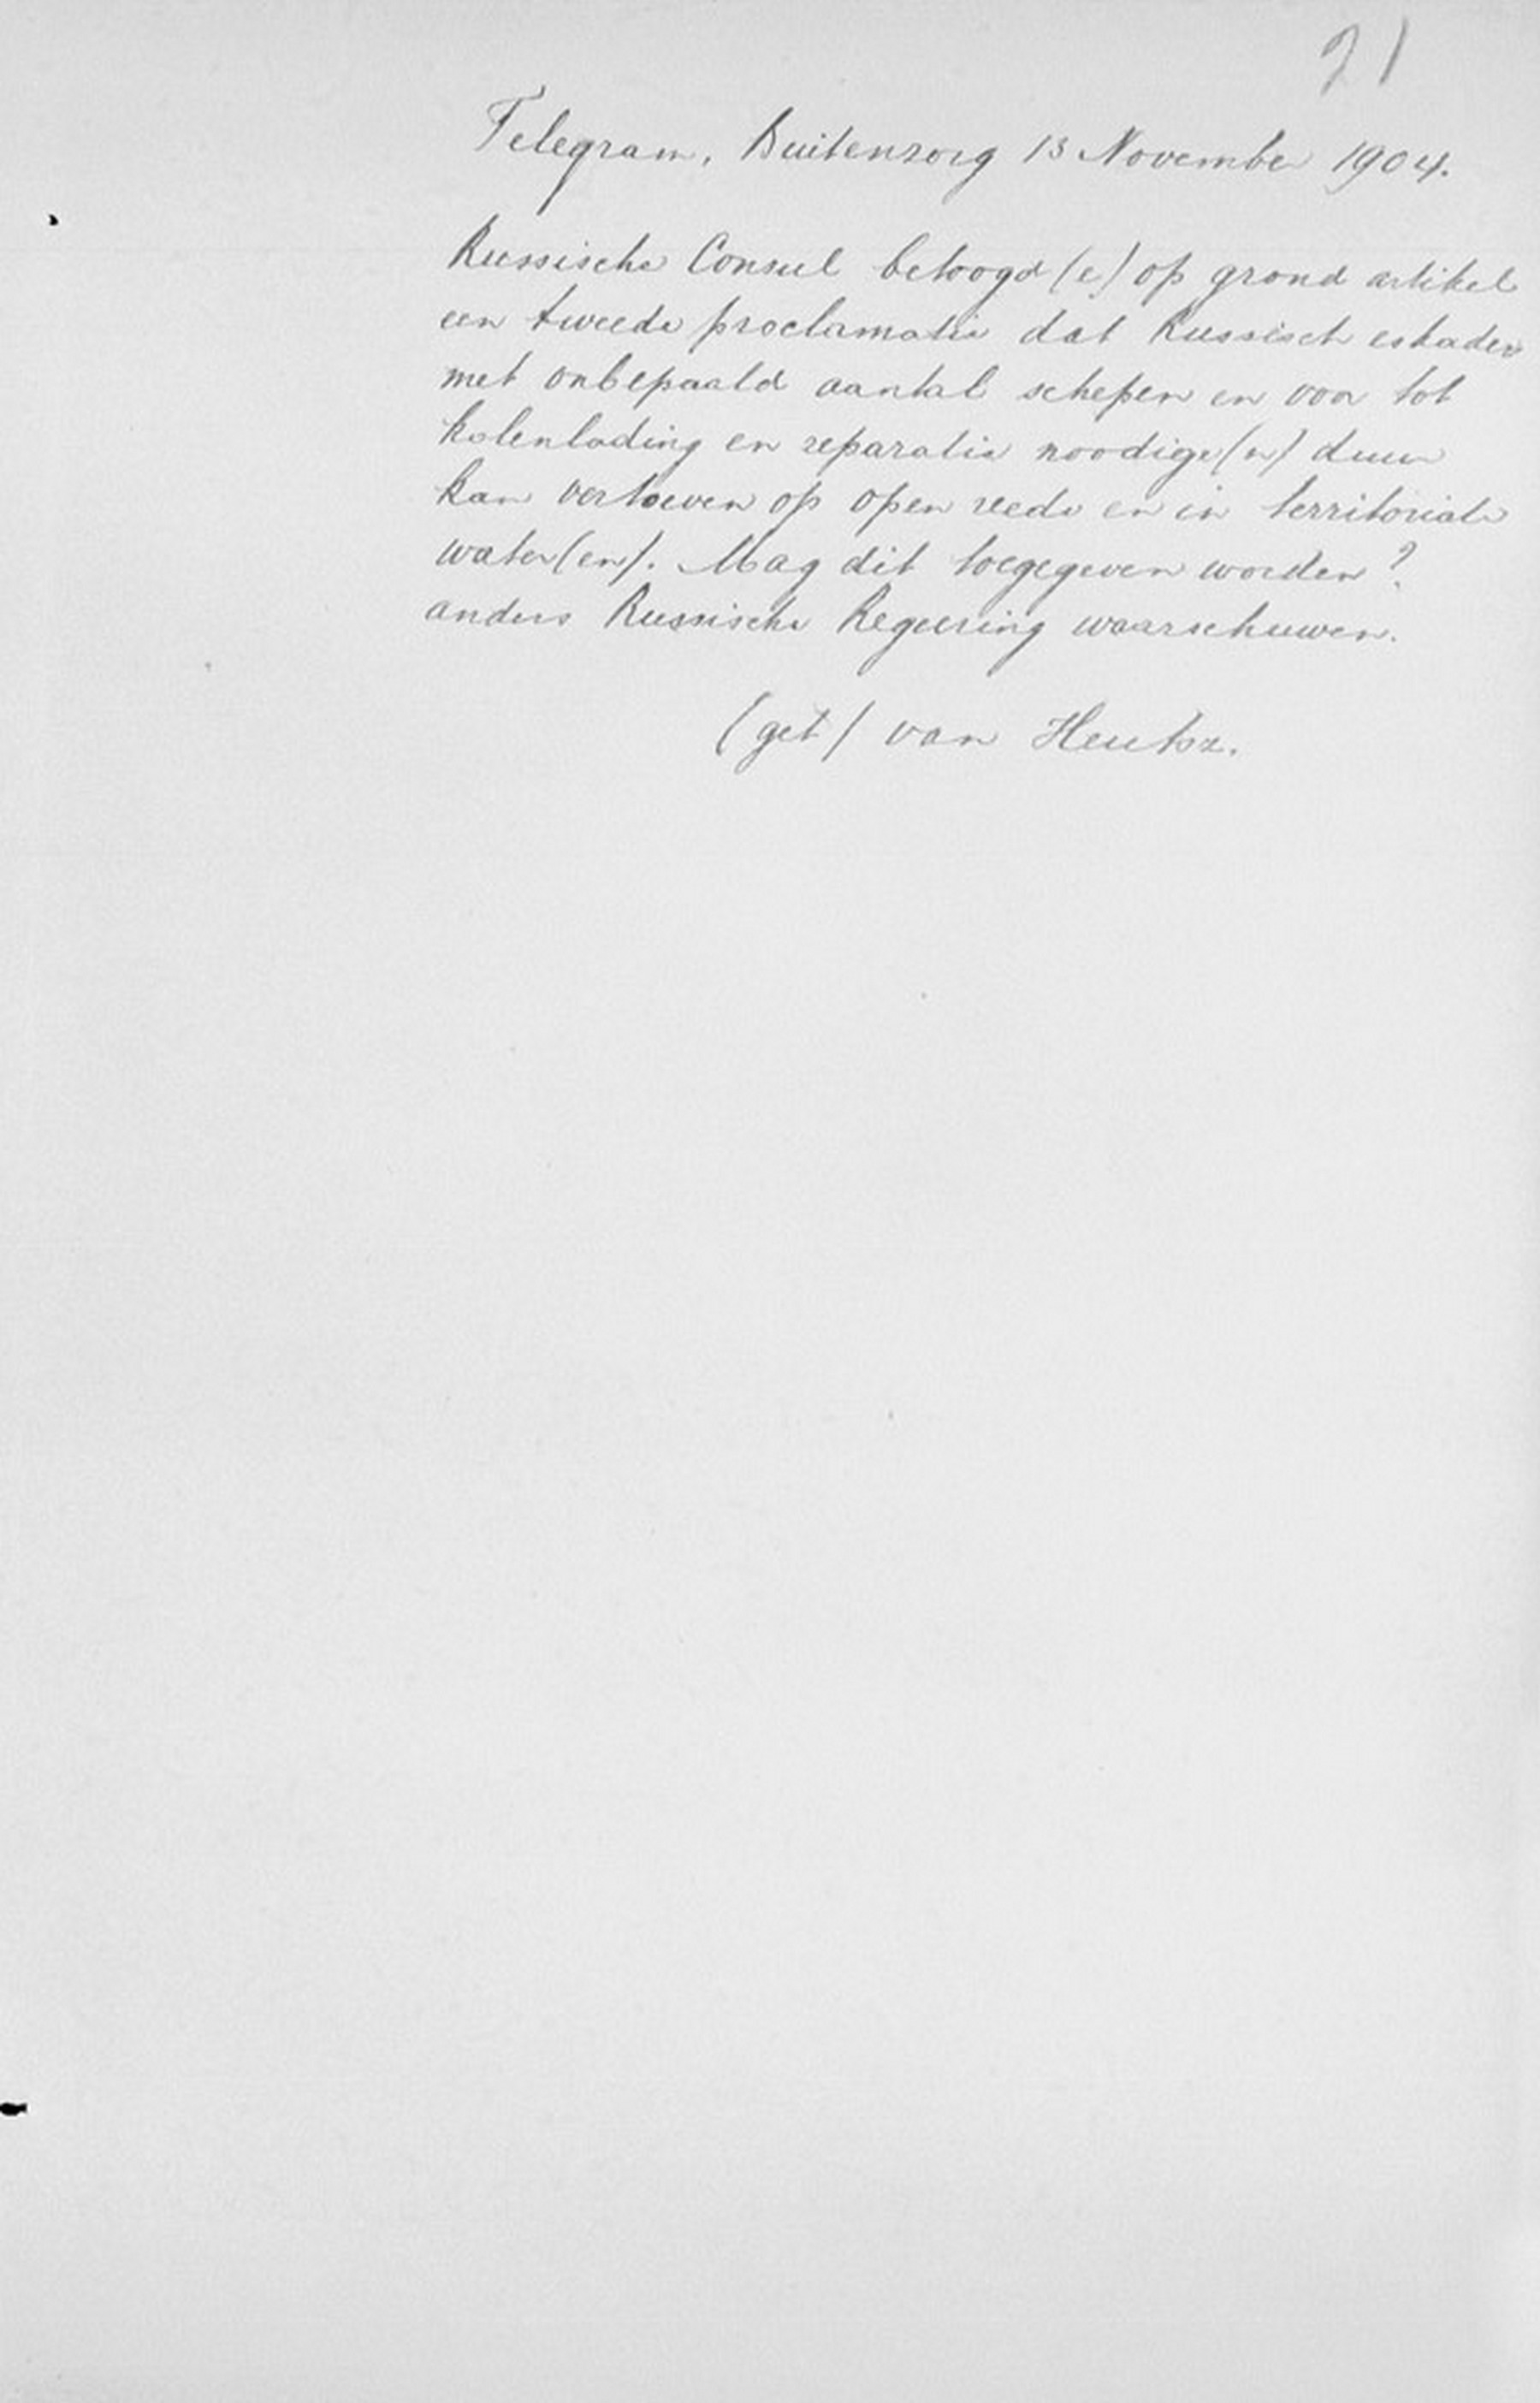 21
Telegram, Buitenzorg 13 November 1904.
Russische Consul betoogd (e) op grond artikel
een tweede proclamatie dat Russisch eskader
met onbepaald aantal schepen en voor tot
kolenlading en reparatie noodige (n) duur
kan vertoeven op open reede en in territoriale
water (en). Mag dit toegegeven worden?
anders Russische Regeering waarschuwen.
(get) van Heutsz.